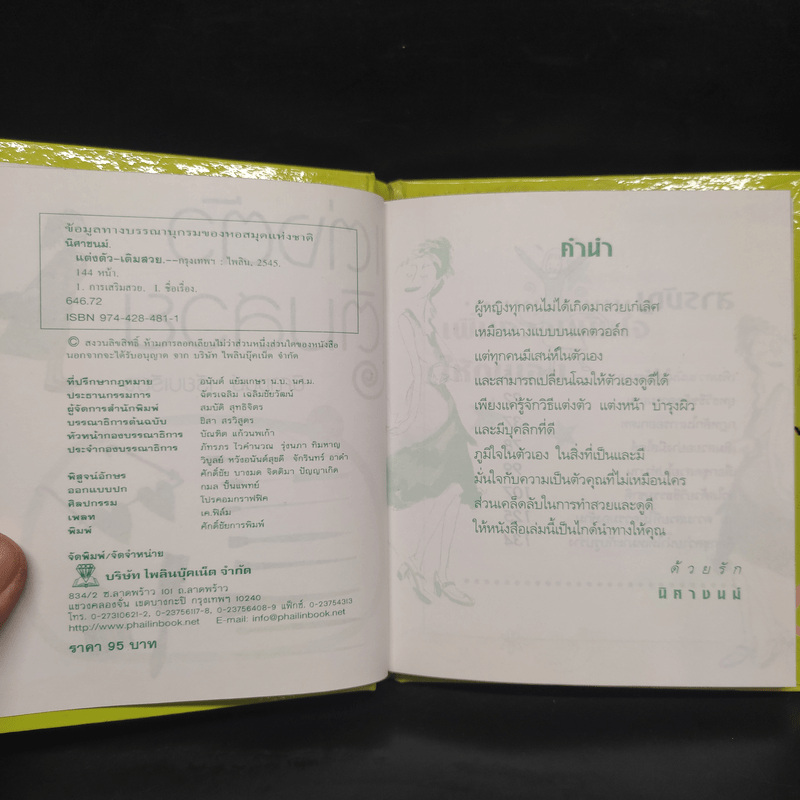 ข้อมูลทางบรรณานุกรมของหอสมุดแห่งชาติ
นิศาชนม์.
แต่งตัว-เติมสวย.--กรุงเทพฯ : ไพลิน, 2545.
144 หน้า.
1. การเสริมสวย. I. ชื่อเรื่อง.
646.72
ISBN 974-428-481-1
© สงวนลิขสิทธิ์ ห้ามการลอกเลียนไม่ว่าส่วนหนึ่งส่วนใดของหนังสือ
นอกจากจะได้รับอนุญาต จาก บริษัท ไพลินบุ๊คเน็ต จำกัด
ที่ปรึกษากฎหมาย อนันต์ แย้มเกษร น.บ. นศ.ม.
ประธานกรรมการ ฉัตรเฉลิม เฉลิมชัยวัฒน์
ผู้จัดการสำนักพิมพ์ สมบัติ สุทธิจิตร
บรรณาธิการต้นฉบับ ธิสา สรวิสูตร
หัวหน้ากองบรรณาธิการ บัณฑิต แก้วนพเก้า
ประจำกองบรรณาธิการ ภัทรภร ไวคำนวณ รุ่งนภา ทิมหาญ
วิบูลย์ หวังอนันต์สุขดี จักรินทร์ อาคำ
พิสูจน์อักษร ศักดิ์ชัย บางมด จิตติมา ปัญญาเกิด
ออกแบบปก กมล ชื่นแพทย์
ศิลปกรรม โปรคอมกราฟฟิค
เพลท เค.ฟิล์ม
พิมพ์ ศักดิ์ชัยการพิมพ์
จัดพิมพ์/จัดจำหน่าย
บริษัท ไพลินบุ๊คเน็ต จำกัด
834/2 ซ.ลาดพร้าว 101 ถ.ลาดพร้าว
แขวงคลองจั่น เขตบางกะปิ กรุงเทพฯ 10240
โทร. 0-27310621-2, 0-23756117-8, 0-23756408-9 แฟ็กซ์. 0-23754313
http://www.phailinbook.net E-mail: info@phailinbook.net
ราคา 95 บาท
คำนำ
ผู้หญิงทุกคนไม่ได้เกิดมาสวยเก๋เลิศ
เหมือนนางแบบบนแคตวอล์ก
แต่ทุกคนมีเสน่ห์ในตัวเอง
และสามารถเปลี่ยนโฉมให้ตัวเองดูดีได้
เพียงแค่รู้จักวิธีแต่งตัว แต่งหน้า บำรุงผิว
และมีบุคลิกที่ดี
ภูมิใจในตัวเอง ในสิ่งที่เป็นและมี
มั่นใจกับความเป็นตัวคุณที่ไม่เหมือนใคร
ส่วนเคล็ดลับในการทำสวยและดูดี
ให้หนังสือเล่มนี้เป็นไกด์นำทางให้คุณ
ด้วยรัก
นิศาชนม์